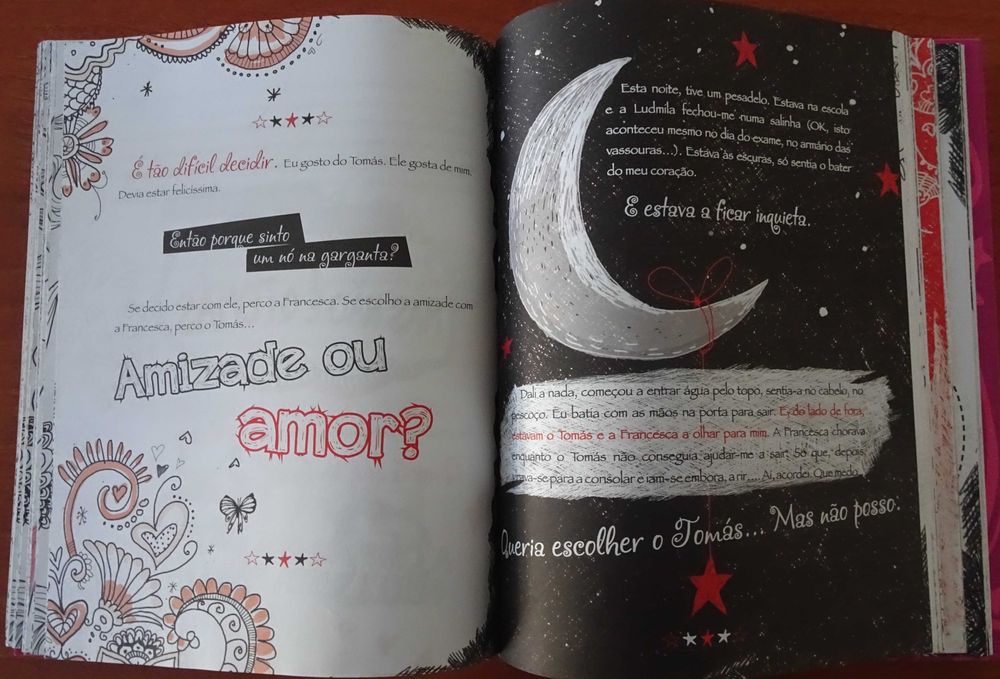 E tão difícil decidir. Eu gosto do Tomás. Ele gosta de mim.
Devia estar felicíssima.
Então porque sinto
um nó na garganta?
Se decido estar com ele, perco a Francesca. Se escolho a amizade com
a Francesca, perco o Tomás...
Amizade ou
amor?
Esta noite, tive um pesadelo. Estava na escola
e a Ludmila fechou-me numa salinha (OK, isto
aconteceu mesmo no dia do exame, no armário das
vassouras...). Estava às escuras, só sentia o bater
do meu coração.
E estava a ficar inquieta.
Dali a nada, começou a entrar água pelo topo, sentia-a no cabelo, no
pescoço. Eu batia com as mãos na porta para sair. E, do lado de fora,
estavam o Tomás e a Francesca a olhar para mim. A Francesca chorava
enquanto o Tomás não conseguia ajudar-me a sair. Só que, depois,
para a consolar e iam-se embora, a rir.... Aí, acordei. Que medo...
Queria escolher o Tomás... Mas não posso.